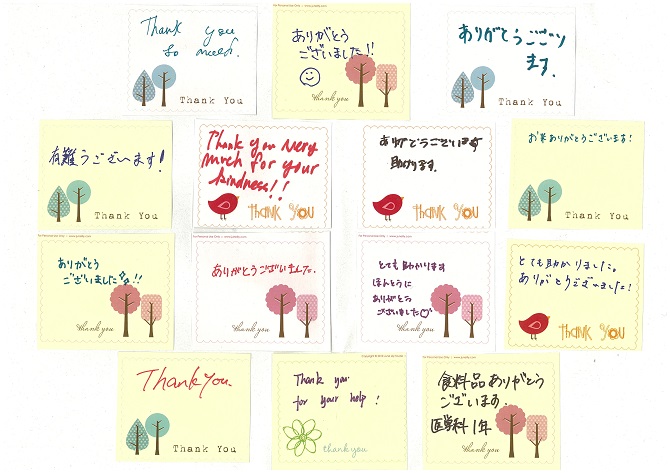 Thank you
so much.
Thank You
ありがとう
ございました!!
thank you
ありがとうござい
ます.
Thank You
有難うございます!
Thank You
Thank you very
much for your
kindness!!
THANK YOU
ありがとうございます
助かります.
THANK YOU
お米ありがとうございます!
Thank You
ありがとう
ございました!!
thank you
ありがとうございました.
thank you
とても助かります
ほんとうに
ありがとう
ございました
thank you
とても助かりました。
ありがとうございました!
THANK YOU
Thank You.
Thank You
Thank you
for your help!
thank you
食料品ありがとう
ございます.
医学科1年
thank you